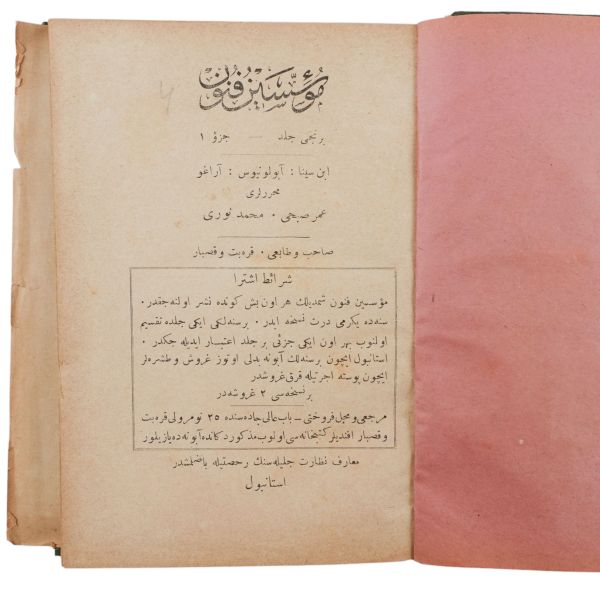 مؤسسین فنون
برنجی جلد — جزؤ ۱
ابن سینا : آپولونیوس : آراغو
محررلری
عمر صبحی ۰ محمد نوری
صاحب و طابعی ۰ قره‌بت و قصبار
شرائط اشترا
مؤسسین فنون شمدیلك هر اون بش كونده نشر اولنه‌جقدر ۰
سنه‌ده یكرمی درت نسخه ایدر ۰ بر سنه‌لكی ایكی جلده تقسیم
اولنوب بهر اون ایكی جزئی بر جلد اعتبار ایدیله جكدر ۰
استانبول ایچون بر سنه‌لك آبونه بدلی اوتوز غروش و طشره‌لر
ایچون پوسته اجرتیله قرق غروشدر
بر نسخه‌سی ۲ غروشه‌در
مرجعی و محل فروختی ــ باب عالی جاده‌سنده ۳۵ نومرولی قره‌بت
و قصبار افندیلر كتبخانه‌سی اولوب مذكور دكانده آبونه ده یازیلور
معارف نظارت جلیله‌سنك رخصتیله باصلمشدر
استانبول